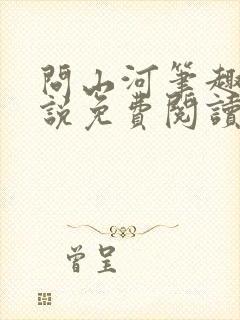 問山河筆趣
說免費閱讀
曾呈